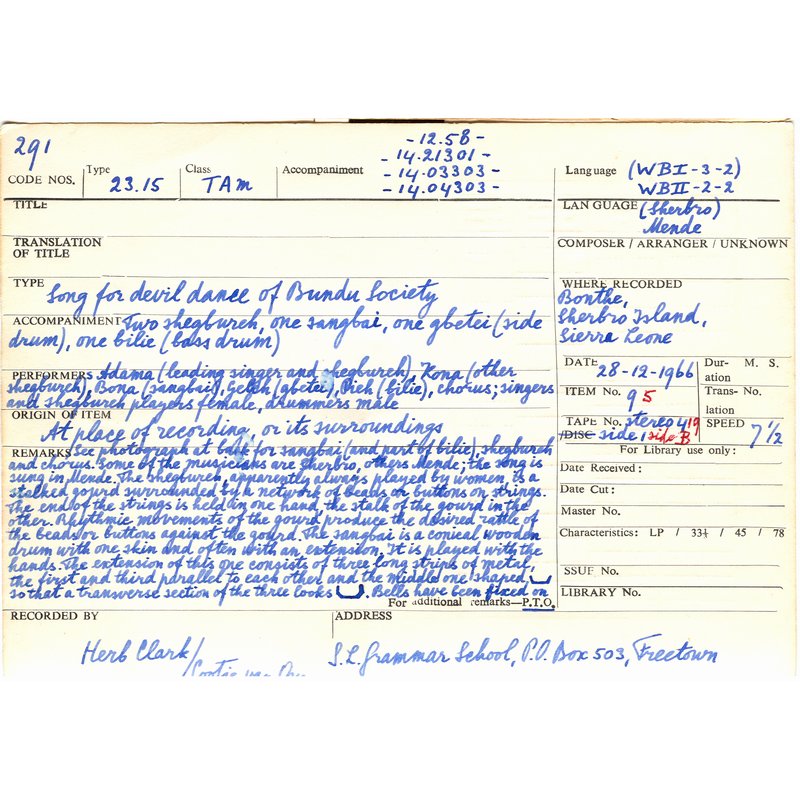 291
-12.58-
-14.21301-
-14.03303-
-14.04303-
CODE NOS. Type 23.15 Class TAM Accompaniment
Language (WBI-3-2)
WBII-2-2
TITLE
LANGUAGE (Sherbro)
Mende
TRANSLATION OF TITLE
COMPOSER / ARRANGER / UNKNOWN
TYPE
Song for devil dance of Bundu Society
WHERE RECORDED
Bonthe,
Sherbro Island,
Sierra Leone
ACCOMPANIMENT Two shegbureh, one sangbai, one gbetei (side
drum), one bilie (bass drum)
DATE 28-12-1966 Duration M. S.
PERFORMERS Adama (leading singer and shegbureh), Kona (other
shegbureh), Bona (sangbai), (gbetei), (bilie), chorus; singers
and shegbureh players female, drummers male
ITEM No. 9 5 Translation No.
ORIGIN OF ITEM
At place of recording or its surroundings
TAPE No. stereo 4 19 SPEED 7 1/2
/DISC side 1 side B
For Library use only:
REMARKS See photograph at back for sangbai (and part of bilie), shegbureh
and chorus. Some of the musicians are Sherbro, others Mende; the song is
sung in Mende. The shegbureh, apparently always played by women, is a
stalked gourd surrounded by a network of beads or buttons on strings.
The end of the strings is held in one hand, the stalk of the gourd in the
other. Rhythmic movements of the gourd produce the desired rattle of
the beads or buttons against the gourd. The sangbai is a conical wooden
drum with one skin and often with an extension. It is played with the
hands. The extension of this one consists of three long strips of metal,
the first and third parallel to each other and the middle one shaped
so that a transverse section of the three looks . Bells have been fixed on
For additional remarks—P.T.O.
Date Received:
Date Cut:
Master No.
Characteristics: LP / 33⅓ / 45 / 78
SSUF No.
LIBRARY No.
RECORDED BY
Herb Clark/
ADDRESS
S.L. Grammar School, P.O. Box 503, Freetown